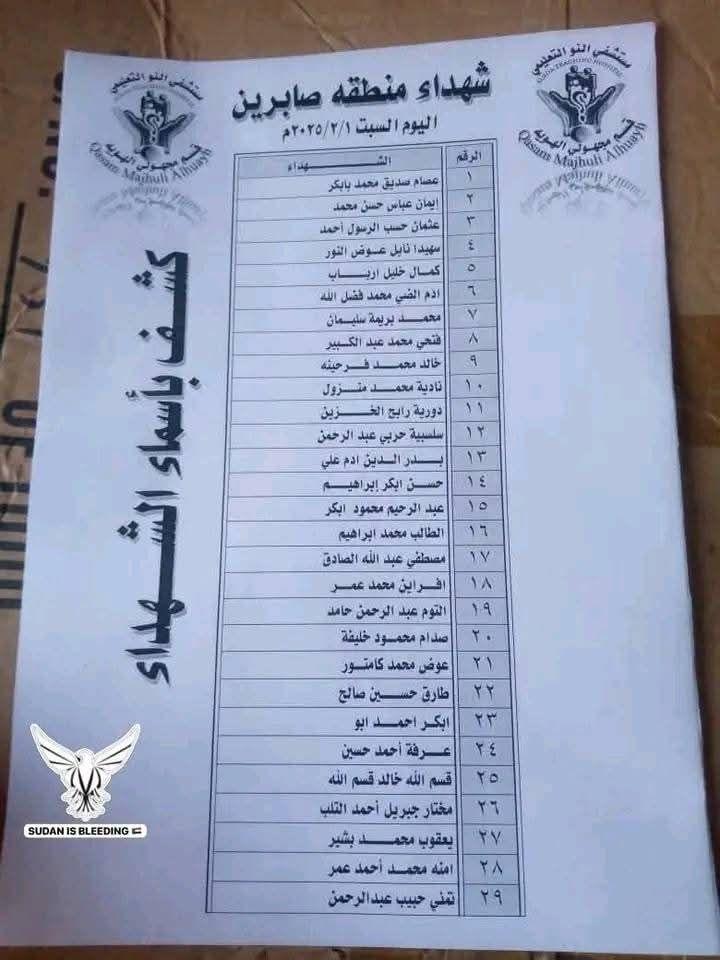 مستشفى النو التعليمي
ALNAW TEACHING HOSPITAL
قسم مجهولي الهوية
Qasam Majhuli Alhuayh
مستشفى النو التعليمي
قسم مجهولي الهوية
Qasam Majhuli Alhuayh
شهداء منطقه صابرين
اليوم السبت ٢٠٢٥/٢/١م
كشف بأسماء الشهداء
الرقم الشهداء
١ عصام صديق محمد بابكر
٢ إيمان عباس حسن محمد
٣ عثمان حسب الرسول أحمد
٤ سهيدا نايل عوض النور
٥ كمال خليل ارباب
٦ ادم الضي محمد فضل الله
٧ محمد بريمة سليمان
٨ فتحي محمد عبد الكبير
٩ خالد محمد فرحينه
١٠ نادية محمد منزول
١١ دورية رابح الخزين
١٢ سلسبية حربي عبد الرحمن
١٣ بدر الدين ادم علي
١٤ حسن ابكر إبراهيم
١٥ عبد الرحيم محمود ابكر
١٦ الطالب محمد ابراهيم
١٧ مصطفي عبد الله الصادق
١٨ افراين محمد عمر
١٩ التوم عبد الرحمن حامد
٢٠ صدام محمود خليفة
٢١ عوض محمد كامتور
٢٢ طارق حسين صالح
٢٣ ابكر احمد ابو
٢٤ عرفة أحمد حسين
٢٥ قسم الله خالد قسم الله
٢٦ مختار جبريل أحمد التلب
٢٧ يعقوب محمد بشير
٢٨ امنه محمد أحمد عمر
٢٩ تمني حبيب عبدالرحمن
SUDAN IS BLEEDING